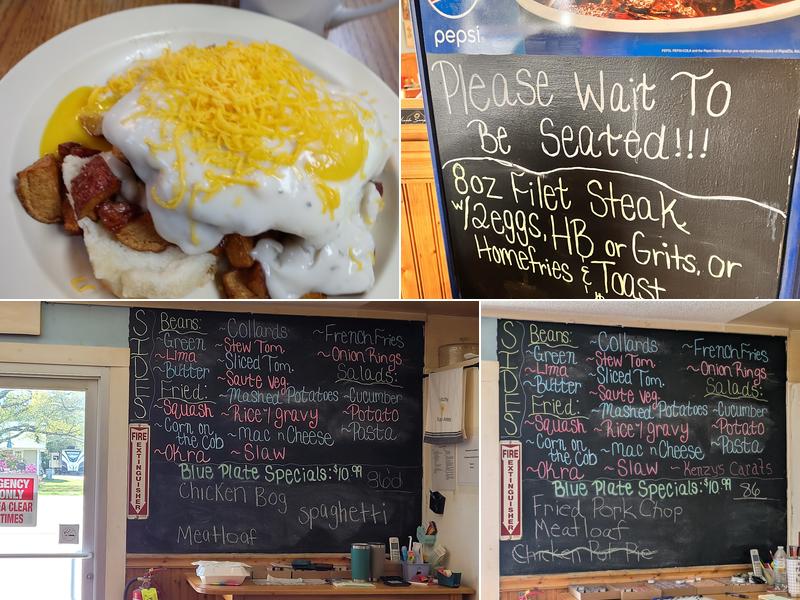 pepsi.
Please Wait To
Be Seated!!!
8oz Filet Steak
w/2eggs, HB or Grits, or
Homefries & Toast
SIDES
Beans: ~Collards ~French Fries
~Green ~Stew Tom. ~Onion Rings
~Lima ~Sliced Tom. Salads:
~Butter ~Saute Veg. ~Cucumber
Fried: ~Mashed Potatoes ~Potato
~Squash ~Rice n gravy ~Pasta
~Corn on the Cob ~Mac n Cheese
~Okra ~Slaw
Blue Plate Specials: $10.99 86'd
Chicken Bog
spaghetti
Meatloaf
FIRE EXTINGUISHER
GENCY
ONLY
A CLEAR
TIMES
SIDES
Beans: ~Collards ~French Fries
~Green ~Stew Tom. ~Onion Rings
~Lima ~Sliced Tom. Salads:
~Butter ~Saute Veg. ~Cucumber
Fried: ~Mashed Potatoes ~Potato
~Squash ~Rice n gravy ~Pasta
~Corn on the Cob ~Mac n Cheese
~Okra ~Slaw ~Kenzys Carats
Blue Plate Specials: $10.99 86
Fried Pork Chop
Meatloaf
Chicken Pot Pie
FIRE EXTINGUISHER